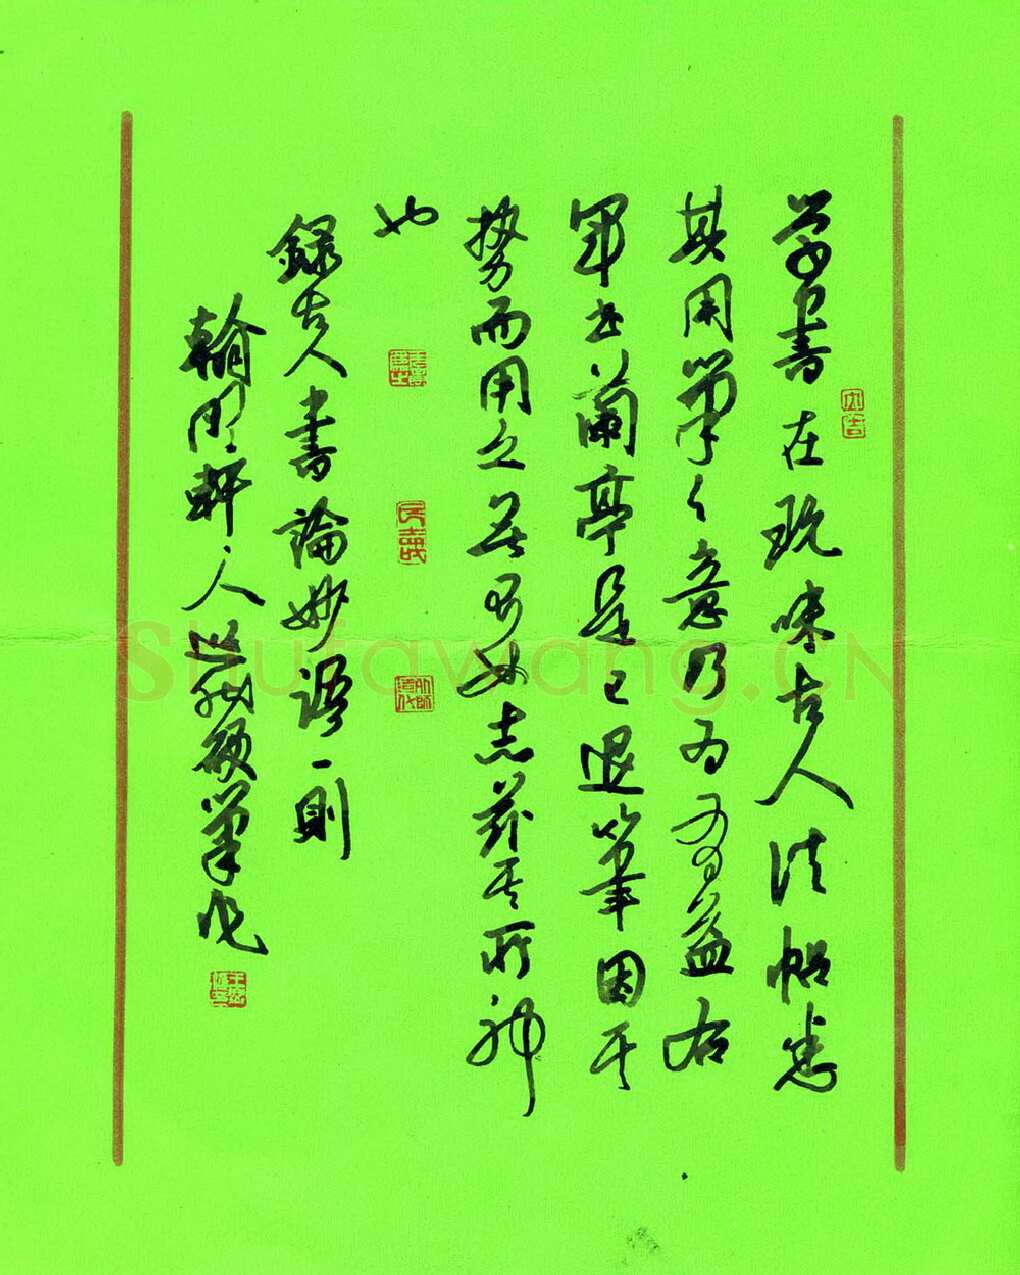 学书在玩味古人法帖悉
其用笔之意乃为有益右
军书兰亭是已退筆因其
势而用之无不如志兹其所神
也
録古人書論妙语一則
翰 軒人 硬筆
Shufawang.CN